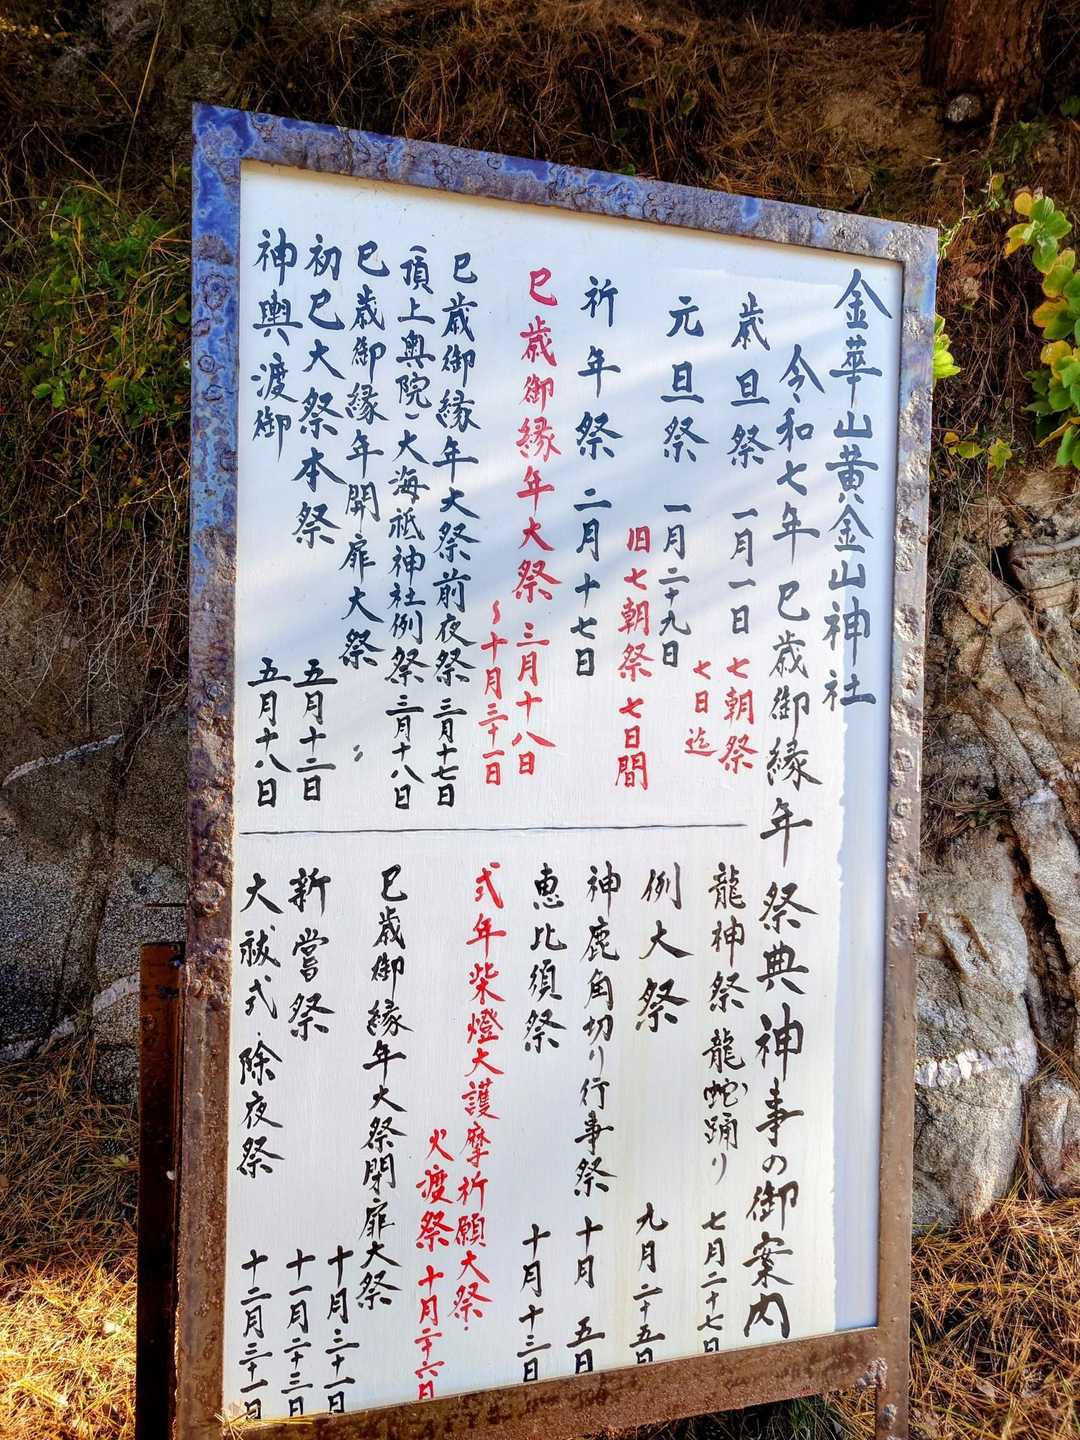 金華山黄金山神社
令和七年 巳歳御縁年 祭典神事の御案内
歳旦祭 一月一日 七朝祭
七日迄
元旦祭 一月二十九日
旧七朝祭 七日間
祈年祭 二月十七日
巳歳御縁年大祭 三月十八日
〜十月三十一日
巳歳御縁年大祭前夜祭 三月十七日
頂上奥院・大海祗神社例祭 三月十八日
巳歳御縁年開扉大祭 〃
初巳大祭本祭 五月十二日
神輿渡御 五月十八日
龍神祭 龍蛇踊り 七月二十七日
例大祭 九月二十五日
神鹿角切り行事祭 十月五日
恵比須祭 十月十三日
式年柴燈大護摩祈願大祭・
火渡祭 十月二十六日
巳歳御縁年大祭閉扉大祭
十月三十一日
新嘗祭 十一月二十三日
大祓式・除夜祭 十二月三十一日